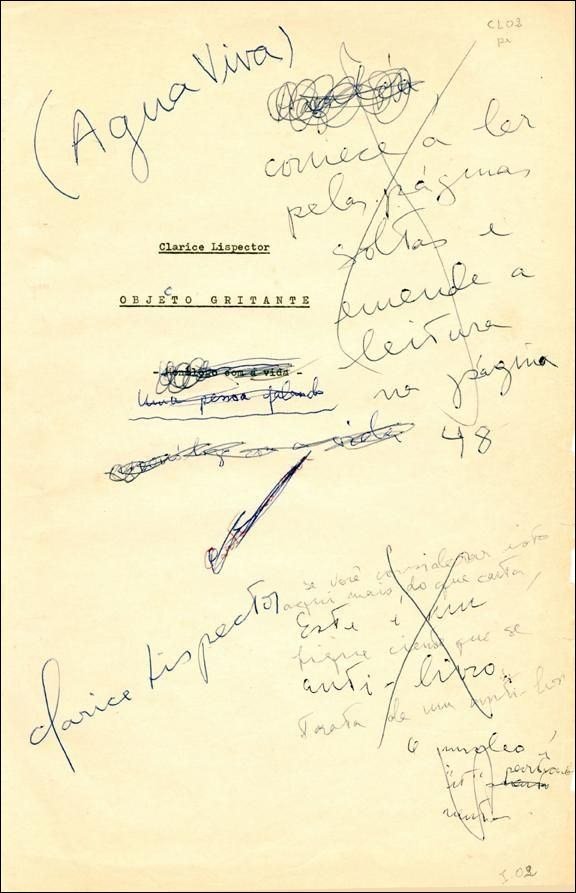 CL02
pi
(Agua Viva)
comece a ler
pelas páginas
soltas e
emende a
leitura
na página
48
Clarice Lispector
OBJETO GRITANTE
c
- Monólogo com a vida -
Uma pessoa falando
com a vida
Clarice Lispector
se você considerar isto
aqui mais do que carta,
Este é um
fique ciente que se
anti-livro.
trata de um anti-livro
O núcleo
I.02